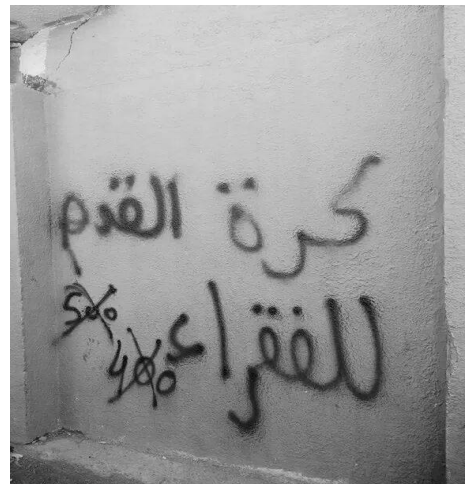 كرة القدم
للفقراء
500
400